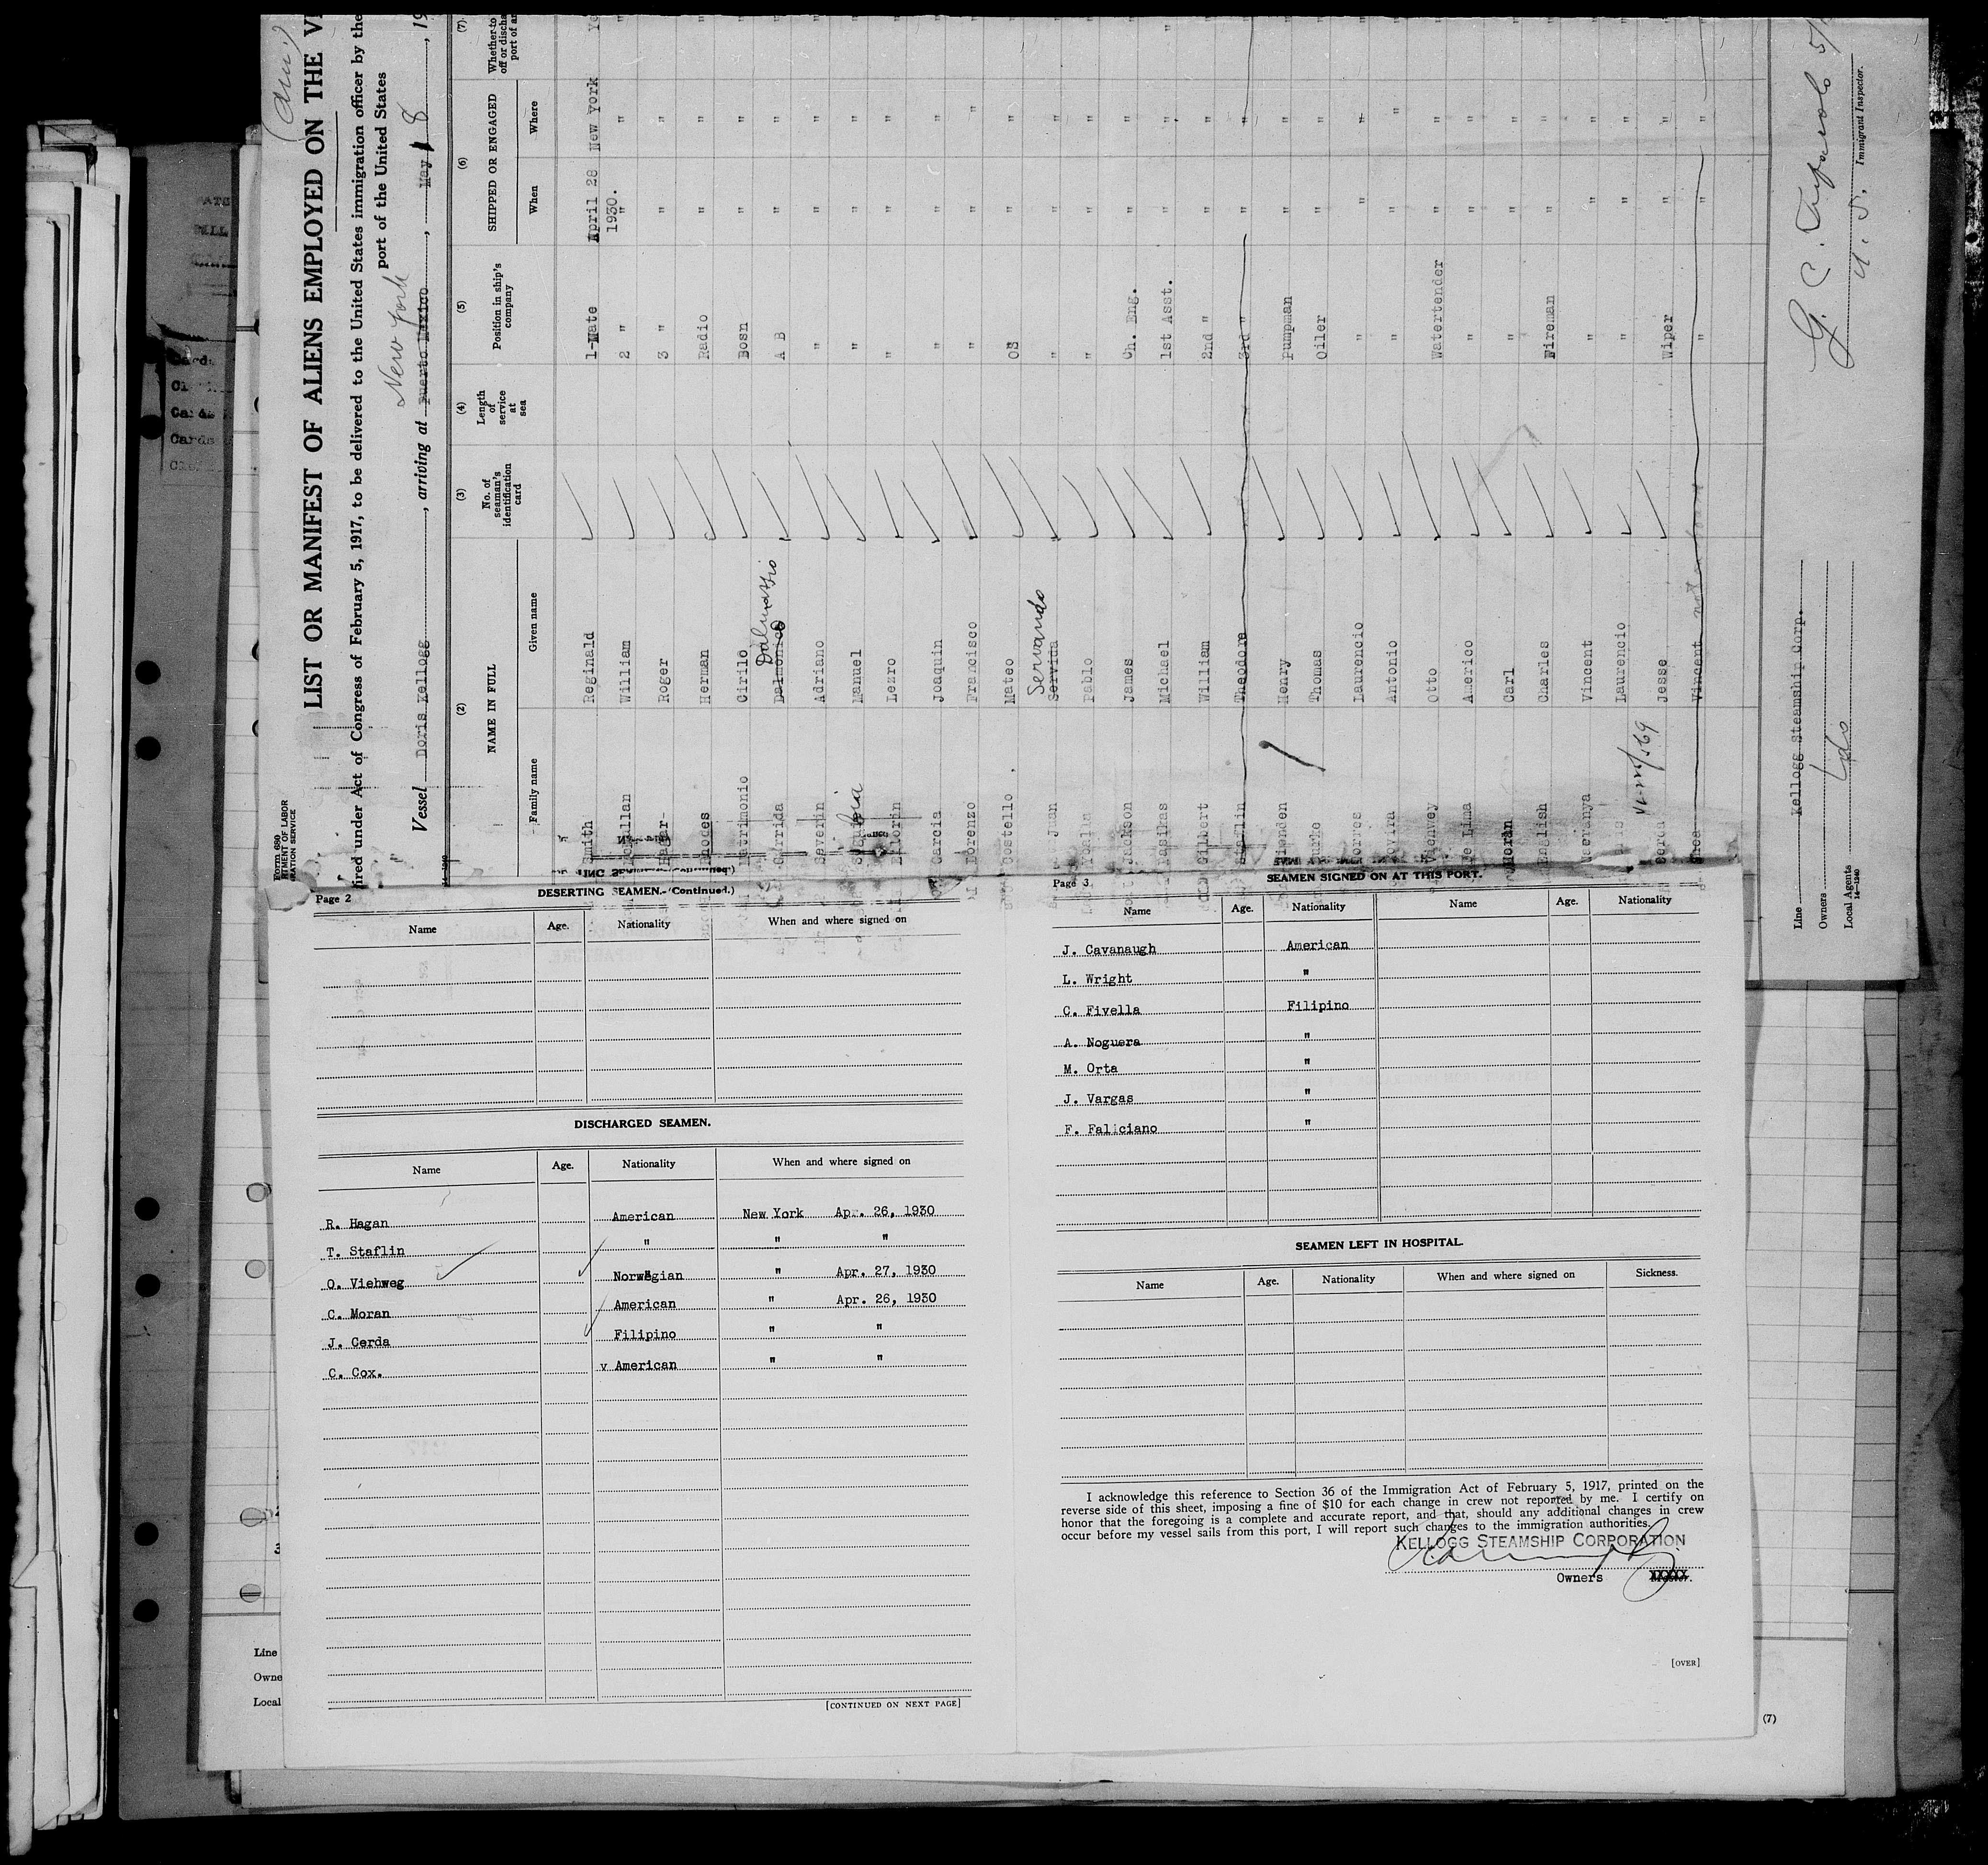 LIST OR MANIFEST OF ALIENS EMPLOYED ON THE
Act of Congress of February 5, 1917, to be delivered to the United States immigration officer by the
port of the United States
Vessel Doris Kellogg, arriving at New York Puerto Mexico, May 8, 19
(2) (3) (4) (5) (6) (7)
NAME IN FULL
Family name Given name
No. of seaman's identification card
Length of service at sea
Position in ship's company
SHIPPED OR ENGAGED
When Where
Smith Reginald 1-Mate April 28 1930. New York
William 2 " " "
Roger 3 " " "
Herman Radio " "
Patrimonio Cirilo Bosn " "
Garrida Dalmonico Dalmassio A B " "
Severin Adriano " " "
Manuel " " "
Lezro " " "
Garcia Joaquin " " "
Lorenzo Francisco " " "
Costello Mateo OS " "
Juan Servida Servando " " "
Pablo " " "
Jackson James Ch. Eng. " "
Michael 1st Asst. " "
Gilbert William 2nd " " "
Theodore 3rd " " "
Henry Pumpman " "
Thomas Oiler " "
Laurencio " " "
Antonio " " "
Otto Watertender " "
De Lima Americo " " "
Moran Carl " " "
English Charles Fireman " "
Vincent " " "
Laurencio " " "
Cerda Jesse Wiper " "
Shea Vincent " " "
Line Kellogg Steamship Corp.
Owners do
Local Agents
U. S. Immigrant Inspector.
Page 2
DESERTING SEAMEN.—(Continued.)
Name Age. Nationality When and where signed on
DISCHARGED SEAMEN.
Name Age. Nationality When and where signed on
R. Hagan American New York Apr. 26, 1930
T. Staflin " " "
O. Viehweg Norwegian " Apr. 27, 1930
C. Moran American " Apr. 26, 1930
J. Cerda Filipino " "
C. Cox. v American " "
[CONTINUED ON NEXT PAGE]
Page 3
SEAMEN SIGNED ON AT THIS PORT.
Name Age. Nationality Name Age. Nationality
J. Cavanaugh American
L. Wright "
C. Fivella Filipino
A. Noguera "
M. Orta "
J. Vargas "
F. Faliciano "
SEAMEN LEFT IN HOSPITAL.
Name Age. Nationality When and where signed on Sickness.
I acknowledge this reference to Section 36 of the Immigration Act of February 5, 1917, printed on the
reverse side of this sheet, imposing a fine of $10 for each change in crew not reported by me. I certify on
honor that the foregoing is a complete and accurate report, and that, should any additional changes in crew
occur before my vessel sails from this port, I will report such changes to the immigration authorities.
KELLOGG STEAMSHIP CORPORATION
Owners
[OVER]
Line
Owne
Local
(7)